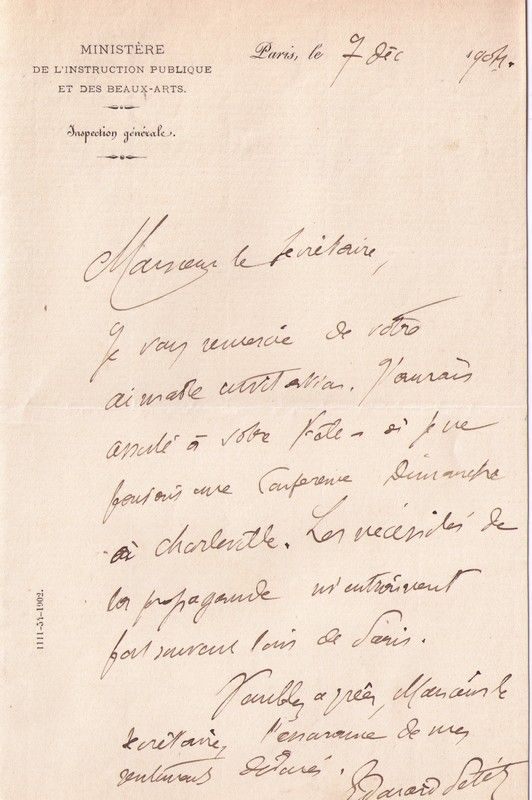 MINISTÈRE
DE L'INSTRUCTION PUBLIQUE
ET DES BEAUX-ARTS.
Inspection générale.
Paris, le 7 déc 1904.
Monsieur le Secrétaire,
Je vous remercie de votre
aimable invitation. J'aurais
assisté à votre fête si je ne
faisais une Conférence Dimanche
à Charleville. Les nécessités de
la propagande m'entraînent
fort souvent loin de Paris.
Veuillez agréer, Monsieur le
Secrétaire, l'assurance de mes
sentiments dévoués.
Edouard Petit
1111-54-1902.